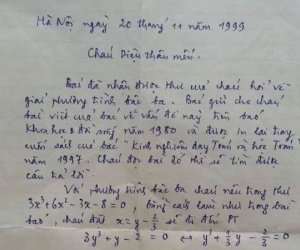 Hà Nội ngày 20 tháng 11 năm 1999
Cháu Diệu thân mến.
Bác đã nhận được thư của cháu hỏi về
giải phương trình bậc ba. Bác gửi cho cháu
bài viết của bác về vấn đề này trên báo
Khoa học & đời sống năm 1980 và được in lại trong
cuốn sách của bác "Kinh nghiệm dạy Toán và học Toán"
năm 1997. Cháu đọc bài đó thì sẽ tìm được
câu trả lời.
Với phương trình bậc ba cháu nêu trong thư
3x³+6x²-3x-8=0, bằng cách làm như trong bài
báo, cháu đặt x=y-2/3 sẽ đi đến PT
3y³+y-2=0 ⟺ y³+1/3y-2/3=0